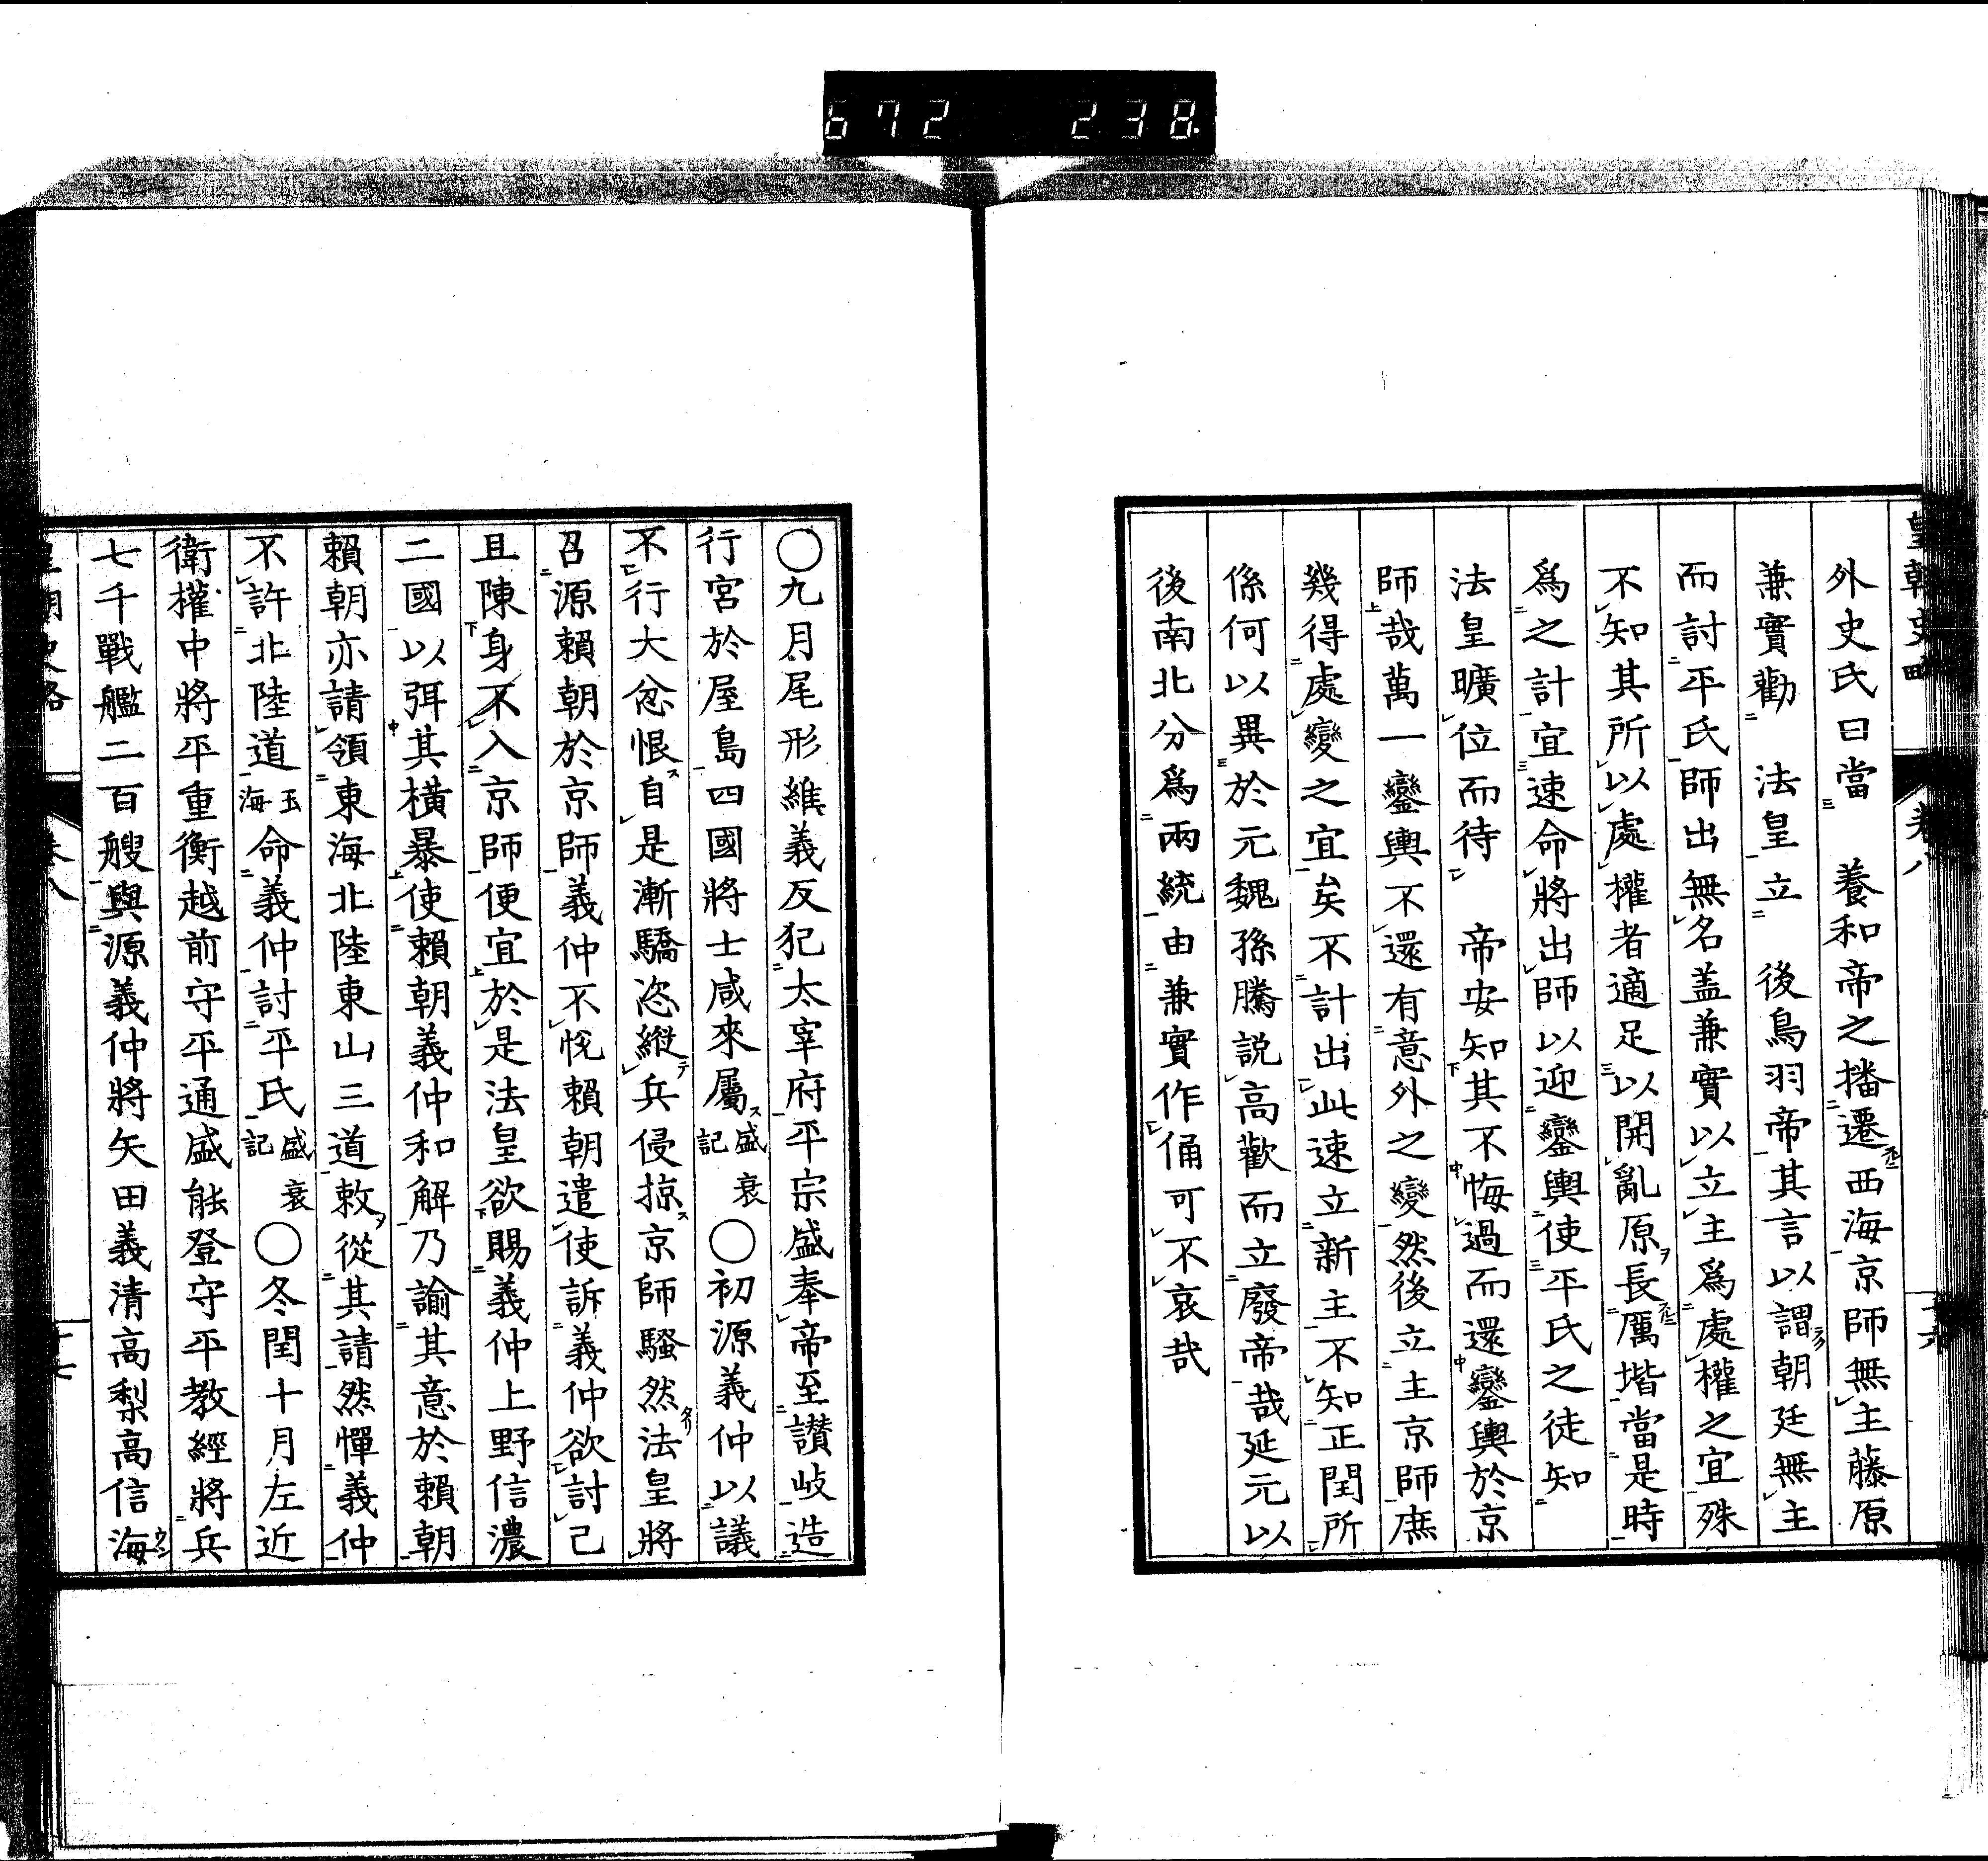 672 238
皇朝史略 卷八
外史氏曰當 養和帝之播遷西海京師無主藤原
兼實勸 法皇立 後鳥羽帝其言以謂朝廷無主
而討平氏師出無名盖兼實以立主爲處權之宜殊
不知其所以處權者適足以開亂原長厲堦當是時
爲之計宜速命將出師以迎鑾輿使平氏之徒知
法皇曠位而待 帝安知其不悔過而還鑾輿於京
師哉萬一鑾輿不還有意外之變然後立主京師庶
幾得處變之宜矣不計出此速立新主不知正閏所
係何以異於元魏孫騰説高歡而立廢帝哉延元以
後南北分爲兩統由兼實作俑可不哀哉
〇九月尾形維義反犯太宰府平宗盛奉帝至讃岐造
行宮於屋島四國將士咸來屬盛衰記〇初源義仲以議
不行大忿恨自是漸驕恣縱兵侵掠京師騷然法皇將
召源賴朝於京師義仲不悅賴朝遣使訴義仲欲討己
且陳身不入京師便宜於是法皇欲賜義仲上野信濃
二國以弭其橫暴使賴朝義仲和解乃諭其意於賴朝
賴朝亦請領東海北陸東山三道敕從其請然憚義仲
不許北陸道玉海命義仲討平氏盛衰記〇冬閏十月左近
衛權中將平重衡越前守平通盛能登守平教經將兵
七千戰艦二百艘與源義仲將矢田義清高梨高信海
皇朝史略 卷八 十七